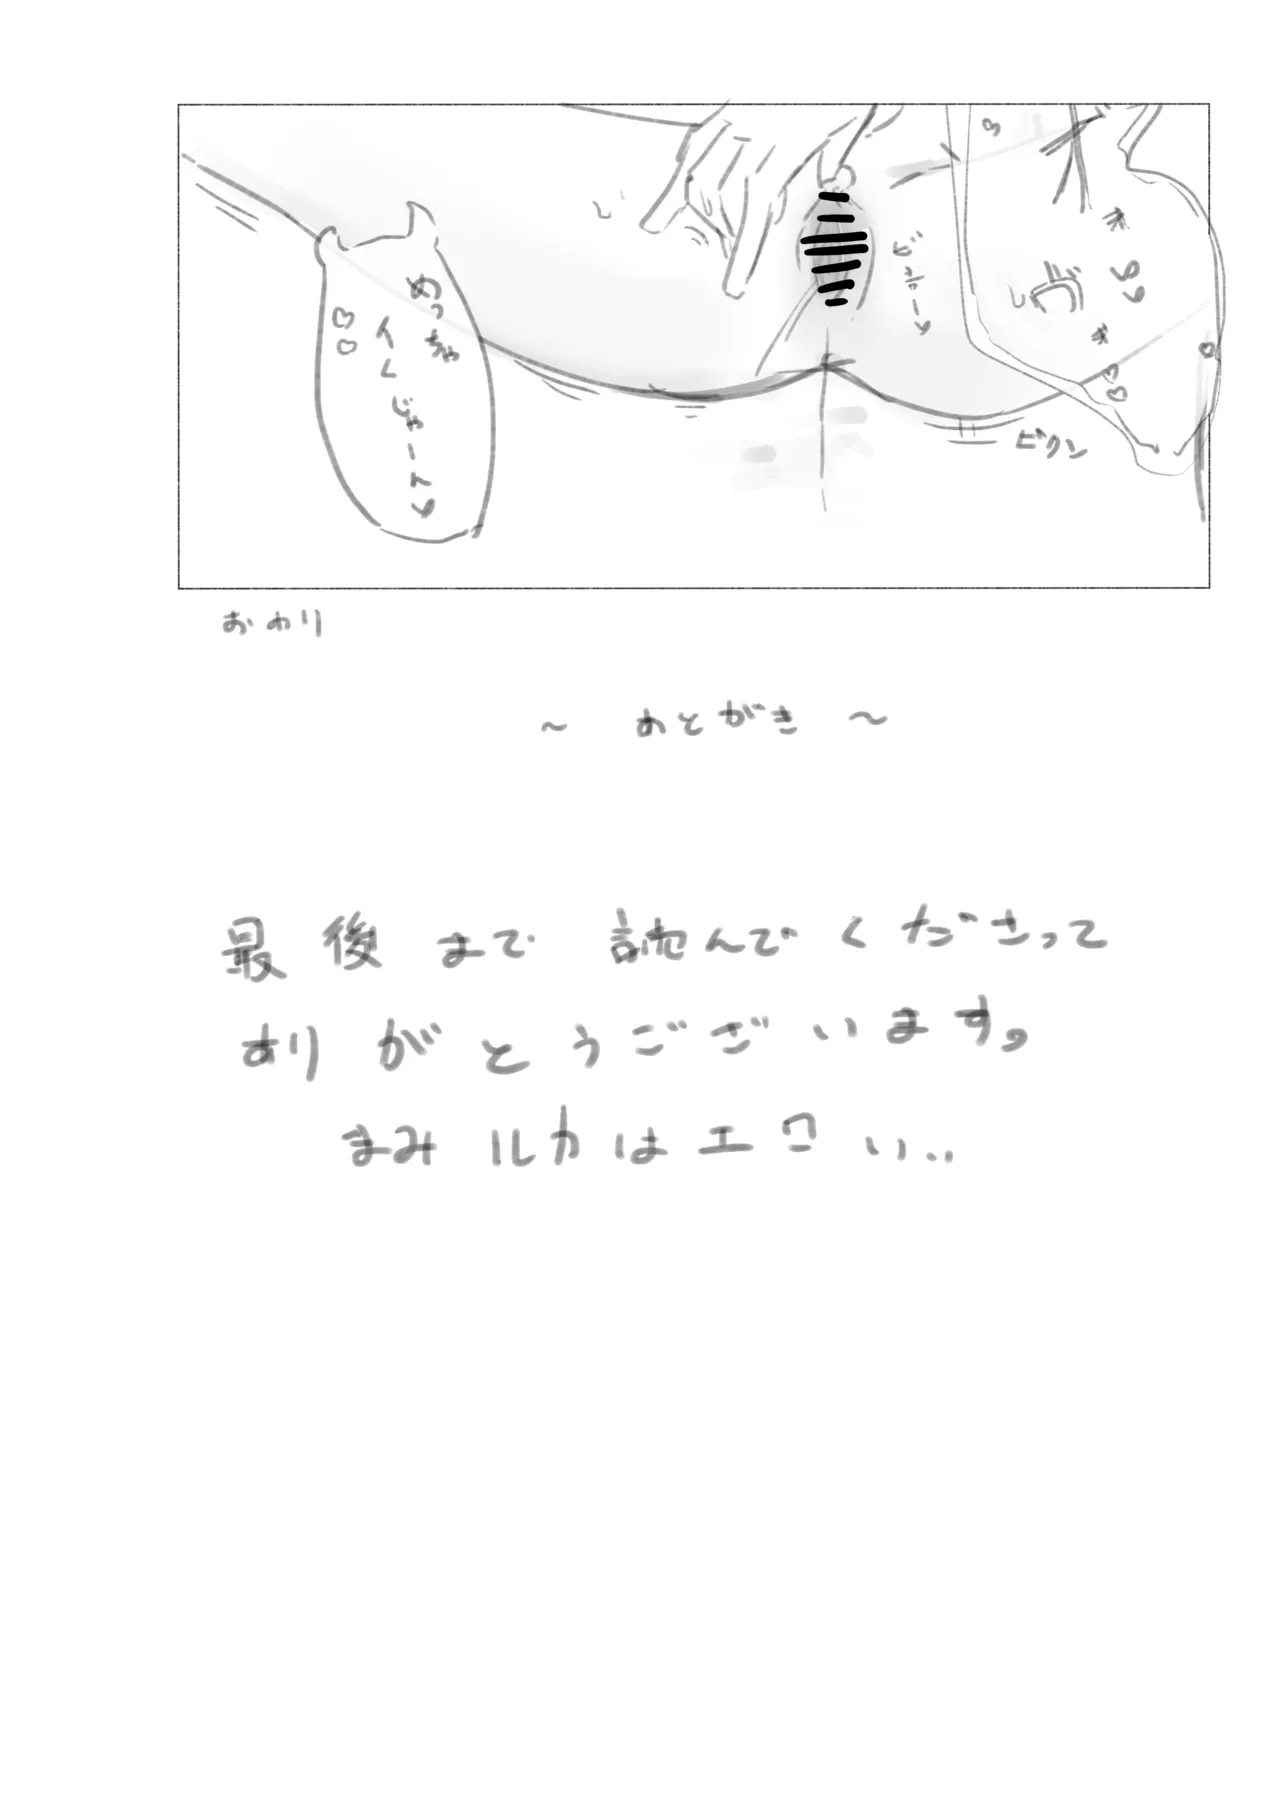 ビクン
めっちゃ
イくじゃーん♥
♡♡
おわり
～ あとがき ～
最後まで読んでくださって
ありがとうございます。
まみルカはエロい..